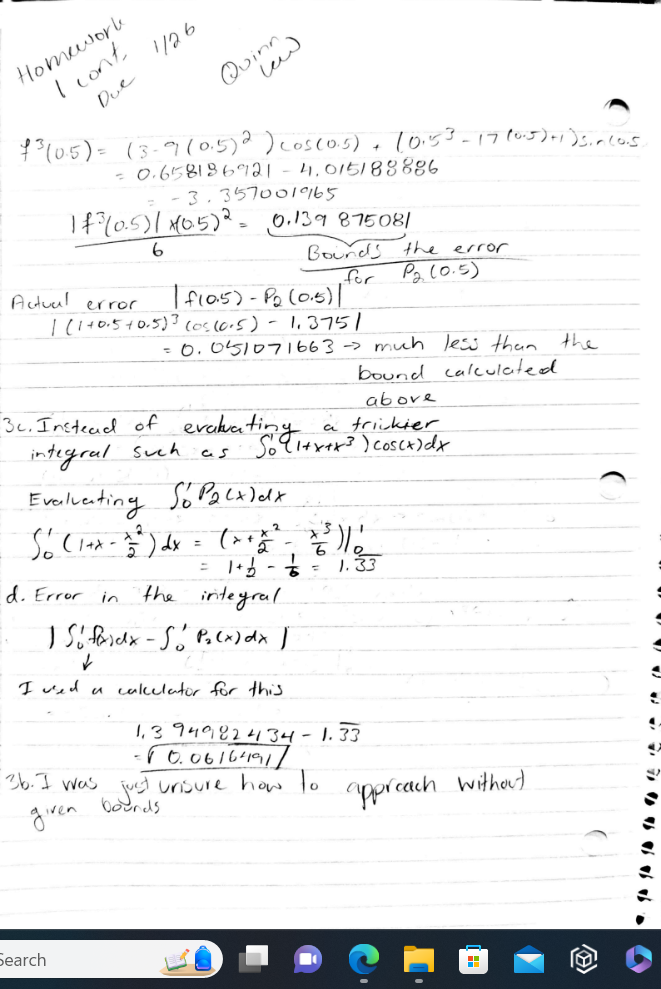 Homework
1 cont.
Due 1/26
Quinn
Law
f³(0.5) = (3-9(0.5)²)cos(0.5) + (0.5³-17(0.5)+1)sin(0.5
= 0.658186921 - 4.015188886
= -3.357001965
|f³(0.5)| x(0.5)² = 0.139875081
6
Bounds the error
for P₂(0.5)
Actual error |f(0.5) - P₂(0.5)|
|(1+0.5+0.5)³cos(0.5) - 1.375|
= 0.051071663 → much less than the
bound calculated
above
3c. Instead of evaluating a trickier
integral such as ∫₀¹(1+x+x³)cos(x)dx
Evaluating ∫₀¹P₂(x)dx
∫₀¹(1+x-x²/2)dx = (x+x²/2-x³/6)|₀¹
= 1+1/2-1/6 = 1.3̅3̅
d. Error in the integral
|∫₀¹f(x)dx - ∫₀¹P₂(x)dx|
↓
I used a calculator for this
1.394982434 - 1.3̅3̅
= 0.0616491
3b. I was just unsure how to approach without
given bounds
Search